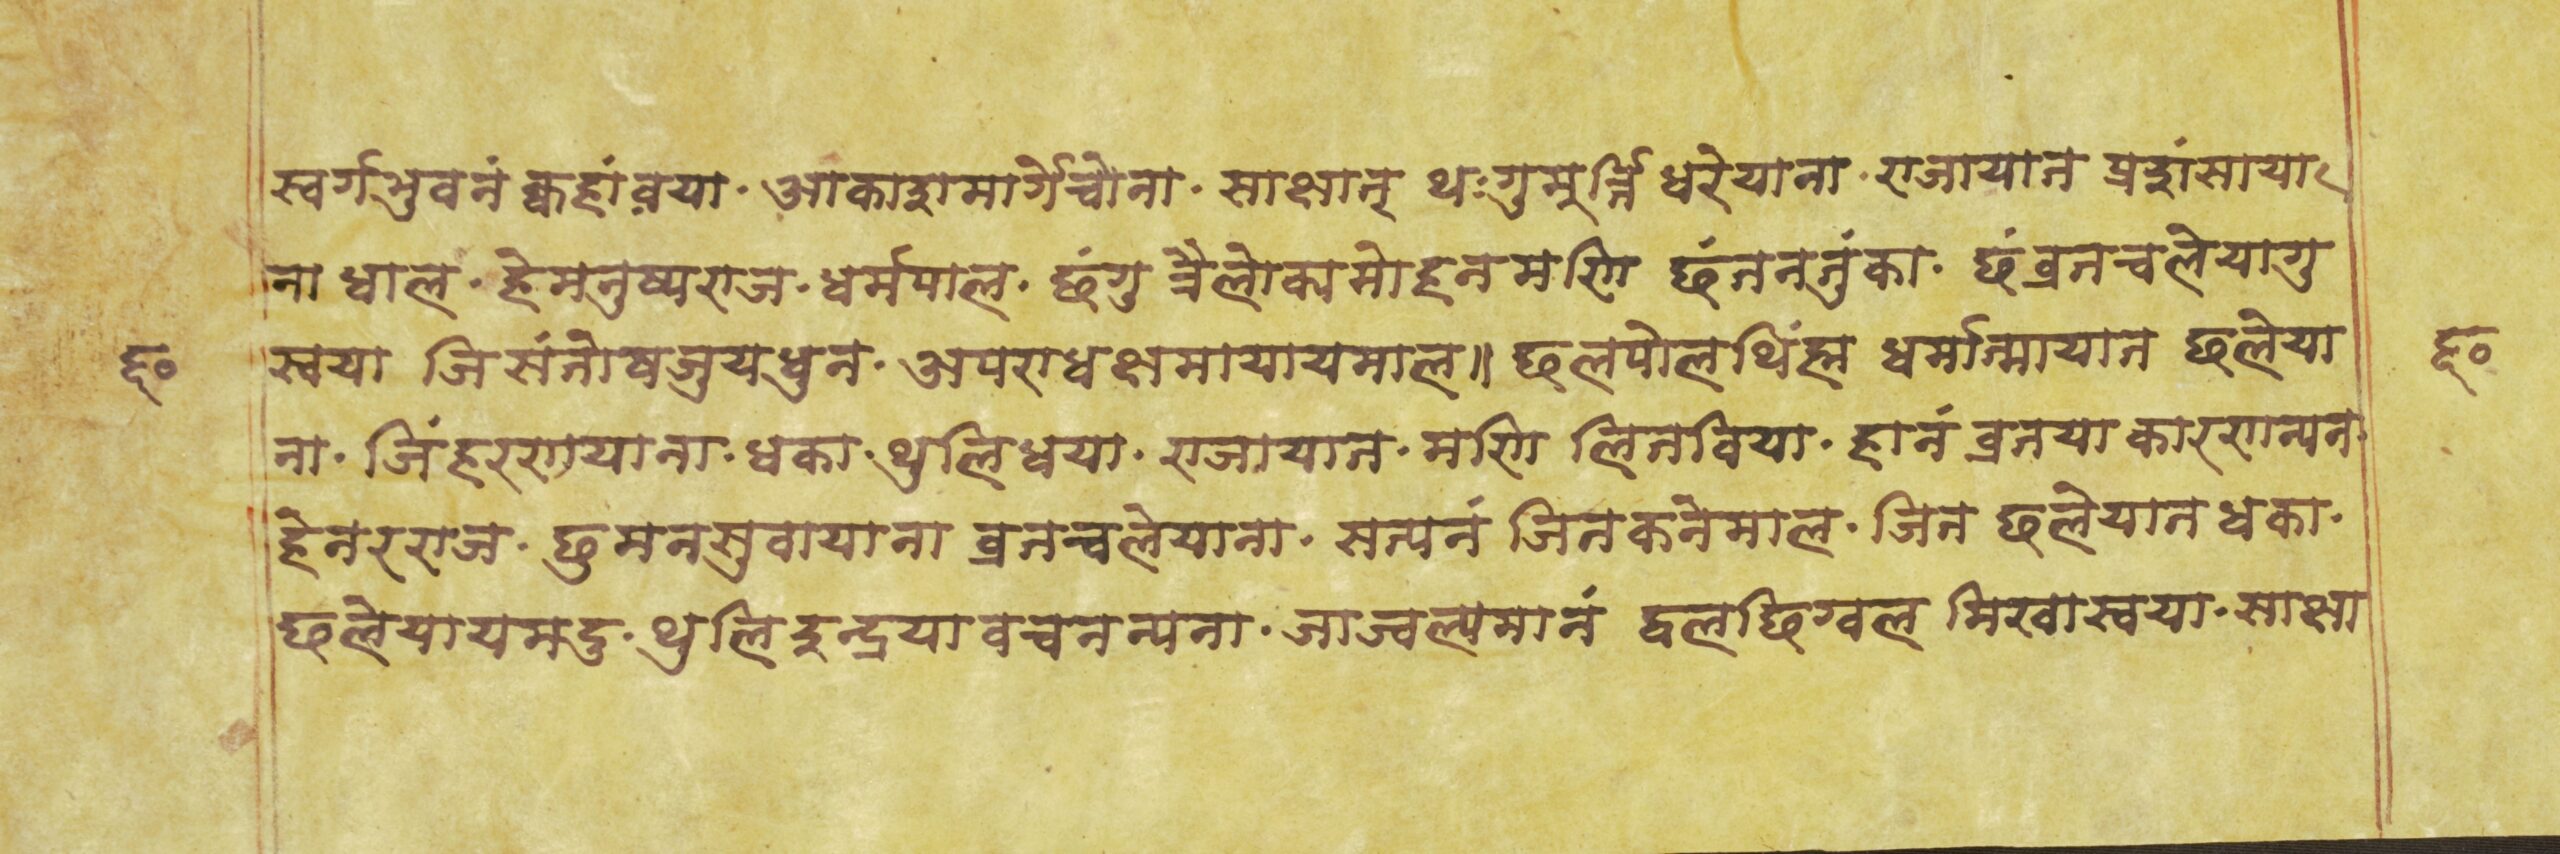 स्वर्गभुवनं क्वहांवया· आकाशमार्गेचोना· साक्षात् थःगुमूर्त्तिधरेयाना· राजायात प्रशंसाया
नाधाल· हेमनुष्यराज· धर्मपाल· छंगु त्रैलोक्यमोहनमणि छंततनुंका· छंव्रतचलेयागु
स्वया जिसंतोषजुयधुन· अपराधक्षमायायमाल॥ छलपोलथिंह्म धर्मात्मायात छलेया
६० ना· जिंहरणयाना·धका·थुलिधया· राजायात· मणि लितविया· हानं व्रतयाकारणन्यन ६०
हेनरराज· छुमनसुवायाना व्रतचलेयाना· सत्यनं जितकनेमाल· जित छलेयातधका·
छलेयायमदु·थुलिइन्द्रयावचनन्यना· जाज्वल्यमानं द्वलछिग्वल मिखास्वया·साक्षा